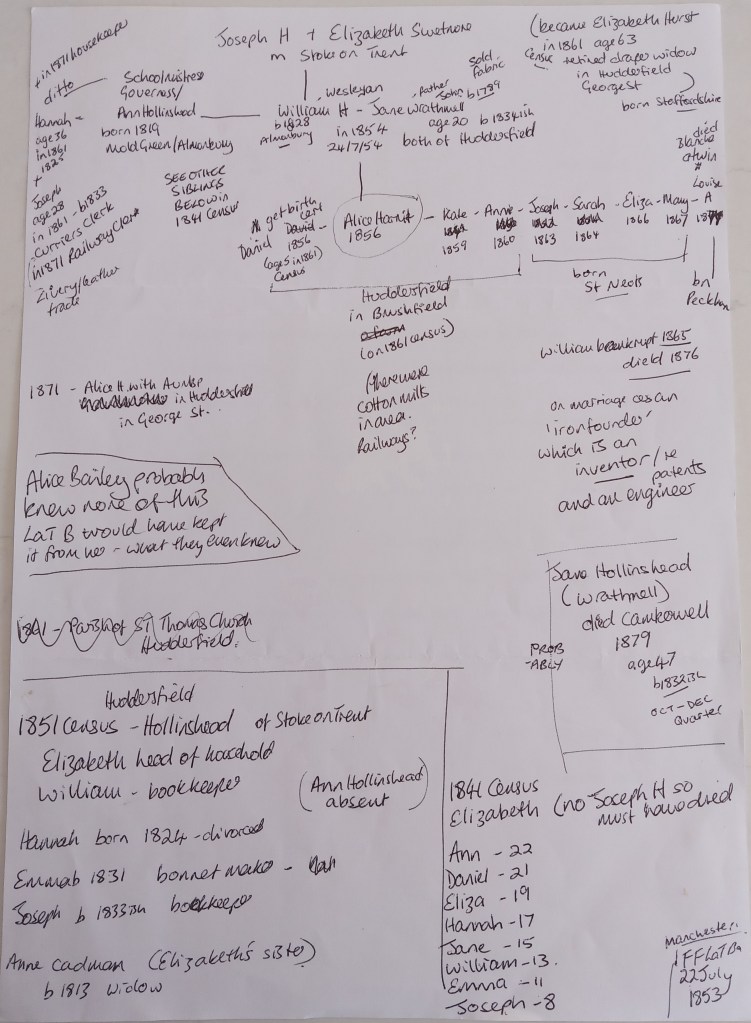 Joseph H + Elizabeth Swetnore
m Stoke on Trent
(became Elizabeth Hurst
in 1861 age 63
Census retired draper widow
in Hudderfield
George St
born Staffordshire
+ in 1871 housekeeper
ditto
Hannah =
age 36
in 1861
1823
+
Joseph
age 28
in 1861 - b 1833
curriers clerk
in 1871 Railway Clerk
Livery/leather
trade
Schoolmistress
Governess/
Ann Hollinshead
born 1819
Mold Green/Almonbury
SEE OTHER
SIBLINGS
BELOW IN
1841 CENSUS
Wesleyan
William H - Jane Wrathnell
b 1828
Almonbury
in 1854
24/7/54
father
John b 1789
sold
fabric
age 20 b 1834ish
both of Hudderfield
get birth
cert
Daniel
1856
(age 5 in 1861)
Census
Alice Harriet
1856
- Kate - Annie - Joseph - Sarah - Eliza - May - A
1859 1860 1863 1864 1866 1867
died
Blanche
a twin
Louise
born
St Neots
bn
Peckham
Hudderfield
in Brushfield
(on 1861 census)
(there were
cotton mills
in area.
Railways?
William bankrupt 1865
dieid 1876
on marriage cer an
'iron founder'
which is an
inventor/re
patents
and an engineer
1871 - Alice H. with Aunts
in Hudderfield
in George St.
Alice Bailey probably
knew none of this
LaT B would have kept
it from her - what they even knew
Jane Hollinshead
(Wrathnell)
died Camberwell
1879
age 47
b 1832ish
OCT-DEC
Quarter
PROB
-ABLY
1861 - Parish of ST Thomas Church
Hudderfield.
Hudderfield
1851 Census - Hollinshead of Stoke on Trent
Elizabeth head of household
William - bookkeeper
(Ann Hollinshead
absent)
Hannah born 1824 - divorced
Emma b 1831 bonnet maker -
Joseph b 1833ish bookkeeper
Anne Cadman (Elizabeth's sister)
b 1813 widow
1841 Census
Elizabeth (no Joseph H so
must have died
Ann - 22
Daniel - 21
Eliza - 19
Hannah - 17
Jane - 15
William - 13.
Emma - 11
Joseph - 8
Manchester:
22 July
1853